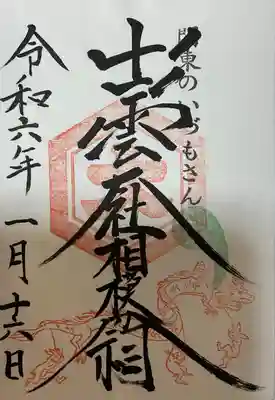 関東のいづもさん
出雲大社相模分祠
令和六年 一月 十六日